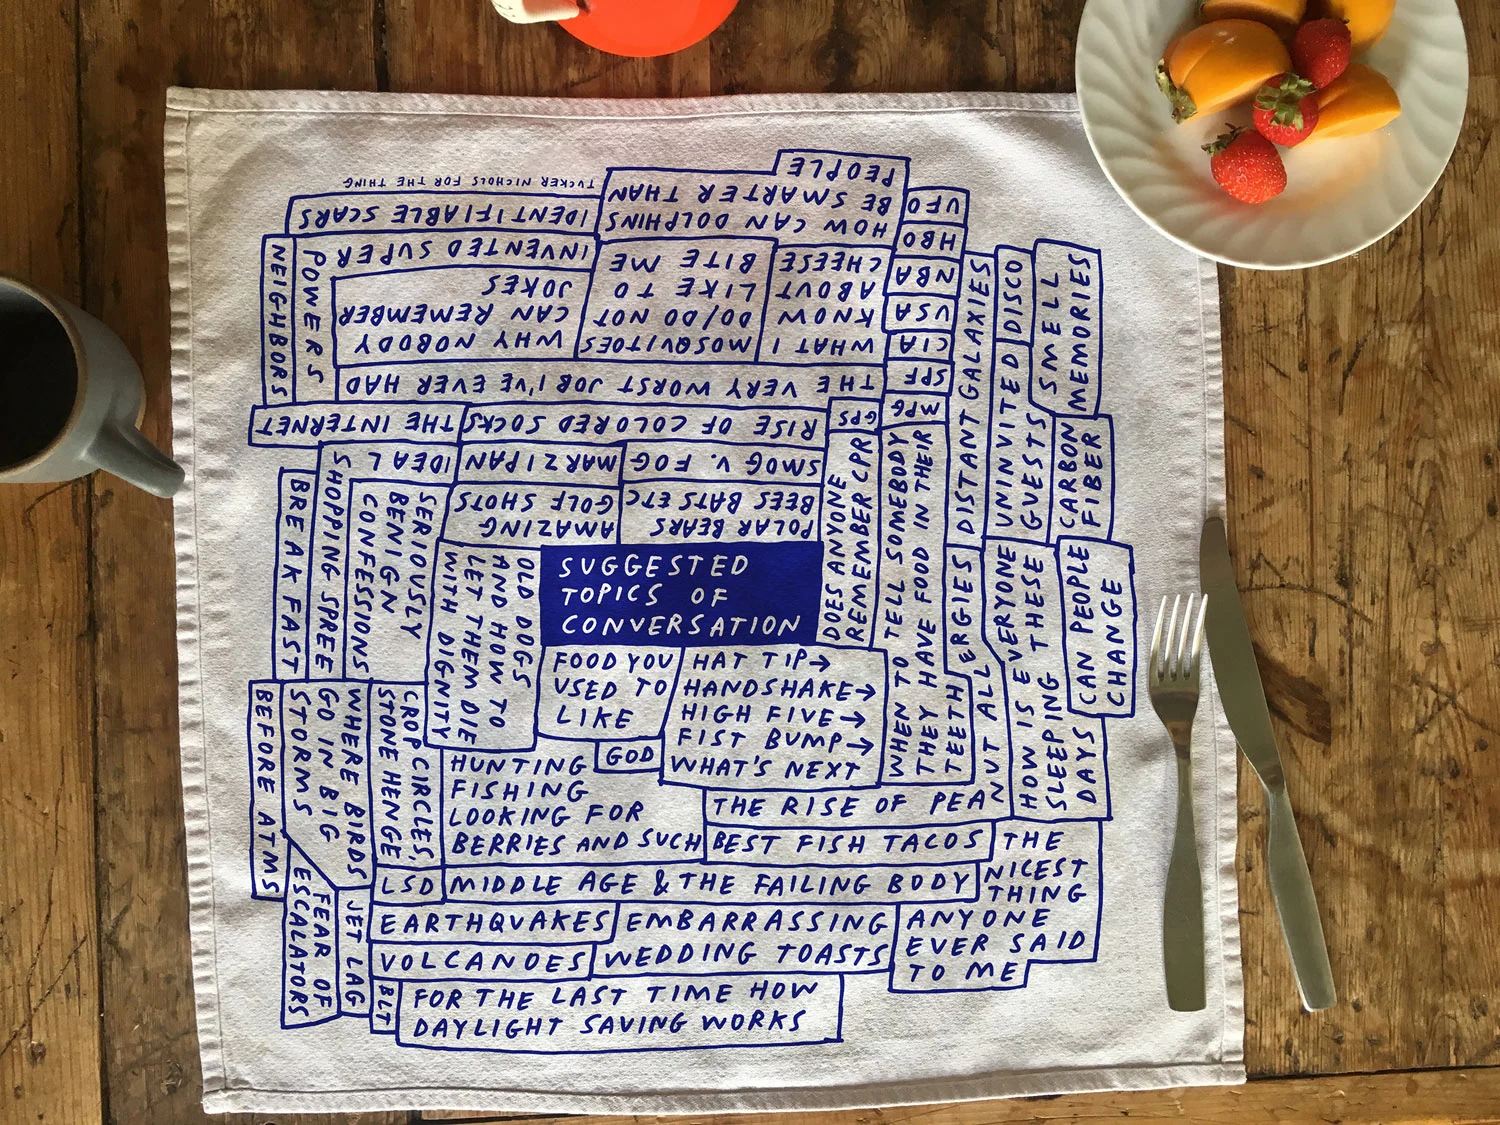 SUGGESTED
TOPICS OF
CONVERSATION
FOOD YOU
USED TO
LIKE
GOD
HAT TIP→
HANDSHAKE→
HIGH FIVE→
FIST BUMP→
WHAT'S NEXT
HUNTING
FISHING
LOOKING FOR
BERRIES AND SUCH
THE RISE OF PEANUT ALLERGIES
BEST FISH TACOS
THE
NICEST
THING
ANYONE
EVER SAID
TO ME
LSD
MIDDLE AGE & THE FAILING BODY
EARTHQUAKES
EMBARRASSING
WEDDING TOASTS
VOLCANOES
FOR THE LAST TIME HOW
DAYLIGHT SAVING WORKS
BLT
JET LAG
FEAR OF
ESCALATORS
WHERE BIRDS
GO IN BIG
STORMS
BEFORE ATMS
CROP CIRCLES,
STONE HENGE
OLD DOGS
AND HOW TO
LET THEM DIE
WITH DIGNITY
SERIOUSLY
BENIGN
CONFESSIONS
IDEAL
SHOPPING SPREE
BREAKFAST
THE INTERNET
NEIGHBORS
TUCKER NICHOLS FOR THE THING
IDENTIFIABLE SCARS
INVENTED SUPER
POWERS
WHY NOBODY
CAN REMEMBER
JOKES
MOSQUITOES
DO/DO NOT
LIKE TO
BITE ME
WHAT I
KNOW
ABOUT
CHEESE
HOW CAN DOLPHINS
BE SMARTER THAN
PEOPLE
THE VERY WORST JOB I'VE EVER HAD
RISE OF COLORED SOCKS
MARZIPAN
SMOG V. FOG
AMAZING
GOLF SHOTS
POLAR BEARS
BEES BATS ETC
UFO
HBO
NBA
USA
CIA
SPF
MPG
GPS
DOES ANYONE
REMEMBER CPR
WHEN TO TELL SOMEBODY
THEY HAVE FOOD IN THEIR
TEETH
DISTANT GALAXIES
DISCO
UNINVITED
GUESTS
SMELL
MEMORIES
CARBON
FIBER
HOW IS EVERYONE
SLEEPING THESE
DAYS
CAN PEOPLE
CHANGE